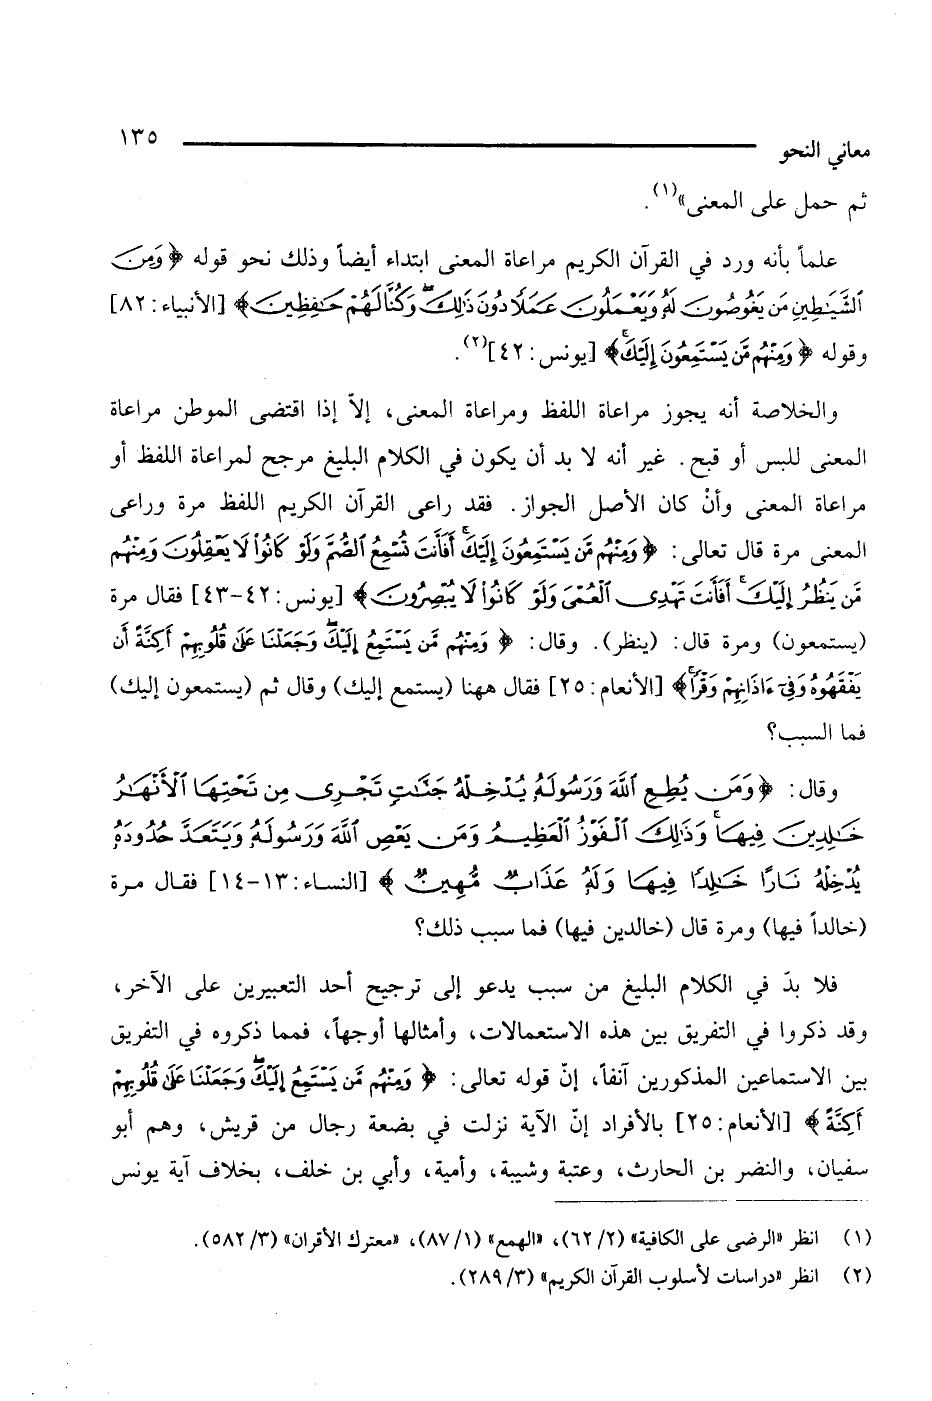 معاني النحو ١٣٥
ثم حمل على المعنى»(١).
علماً بأنه ورد في القرآن الكريم مراعاة المعنى ابتداء أيضاً وذلك نحو قوله ﴿ وَمِنَ
ٱلشَّيَٰطِينِ مَن يَغُوصُونَ لَهُۥ وَيَعْمَلُونَ عَمَلًا دُونَ ذَٰلِكَۖ وَكُنَّا لَهُمْ حَٰفِظِينَ﴾ [الأنبياء: ٨٢]
وقوله ﴿ وَمِنْهُم مَّن يَسْتَمِعُونَ إِلَيْكَۚ﴾ [يونس: ٤٢](٢).
والخلاصة أنه يجوز مراعاة اللفظ ومراعاة المعنى، إلاّ إذا اقتضى الموطن مراعاة
المعنى للبس أو قبح. غير أنه لا بد أن يكون في الكلام البليغ مرجح لمراعاة اللفظ أو
مراعاة المعنى وأنْ كان الأصل الجواز. فقد راعى القرآن الكريم اللفظ مرة وراعى
المعنى مرة قال تعالى: ﴿ وَمِنْهُم مَّن يَسْتَمِعُونَ إِلَيْكَۚ أَفَأَنتَ تُسْمِعُ ٱلصُّمَّ وَلَوْ كَانُوا۟ لَا يَعْقِلُونَ وَمِنْهُم
مَّن يَنظُرُ إِلَيْكَۚ أَفَأَنتَ تَهْدِى ٱلْعُمْىَ وَلَوْ كَانُوا۟ لَا يُبْصِرُونَ﴾ [يونس: ٤٢-٤٣] فقال مرة
(يستمعون) ومرة قال: (ينظر). وقال: ﴿ وَمِنْهُم مَّن يَسْتَمِعُ إِلَيْكَۖ وَجَعَلْنَا عَلَىٰ قُلُوبِهِمْ أَكِنَّةً أَن
يَفْقَهُوهُ وَفِىٓ ءَاذَانِهِمْ وَقْرًاۚ﴾ [الأنعام: ٢٥] فقال ههنا (يستمع إليك) وقال ثم (يستمعون إليك)
فما السبب؟
وقال: ﴿ وَمَن يُطِعِ ٱللَّهَ وَرَسُولَهُۥ يُدْخِلْهُ جَنَّٰتٍ تَجْرِى مِن تَحْتِهَا ٱلْأَنْهَٰرُ
خَٰلِدِينَ فِيهَاۚ وَذَٰلِكَ ٱلْفَوْزُ ٱلْعَظِيمُ وَمَن يَعْصِ ٱللَّهَ وَرَسُولَهُۥ وَيَتَعَدَّ حُدُودَهُۥ
يُدْخِلْهُ نَارًا خَٰلِدًا فِيهَا وَلَهُۥ عَذَابٌ مُّهِينٌ ﴾ [النساء: ١٣-١٤] فقال مرة
(خالداً فيها) ومرة قال (خالدين فيها) فما سبب ذلك؟
فلا بدّ في الكلام البليغ من سبب يدعو إلى ترجيح أحد التعبيرين على الآخر،
وقد ذكروا في التفريق بين هذه الاستعمالات، وأمثالها أوجهاً، فمما ذكروه في التفريق
بين الاستماعين المذكورين آنفاً، إنّ قوله تعالى: ﴿ وَمِنْهُم مَّن يَسْتَمِعُ إِلَيْكَۖ وَجَعَلْنَا عَلَىٰ قُلُوبِهِمْ
أَكِنَّةً ﴾ [الأنعام: ٢٥] بالأفراد إنّ الآية نزلت في بضعة رجال من قريش، وهم أبو
سفيان، والنضر بن الحارث، وعتبة وشيبة، وأمية، وأبي بن خلف، بخلاف آية يونس
(١) انظر «الرضى على الكافية» (٢/ ٦٢)، «الهمع» (١/ ٨٧)، «معترك الأقران» (٣/ ٥٨٢).
(٢) انظر «دراسات لأسلوب القرآن الكريم» (٣/ ٢٨٩).